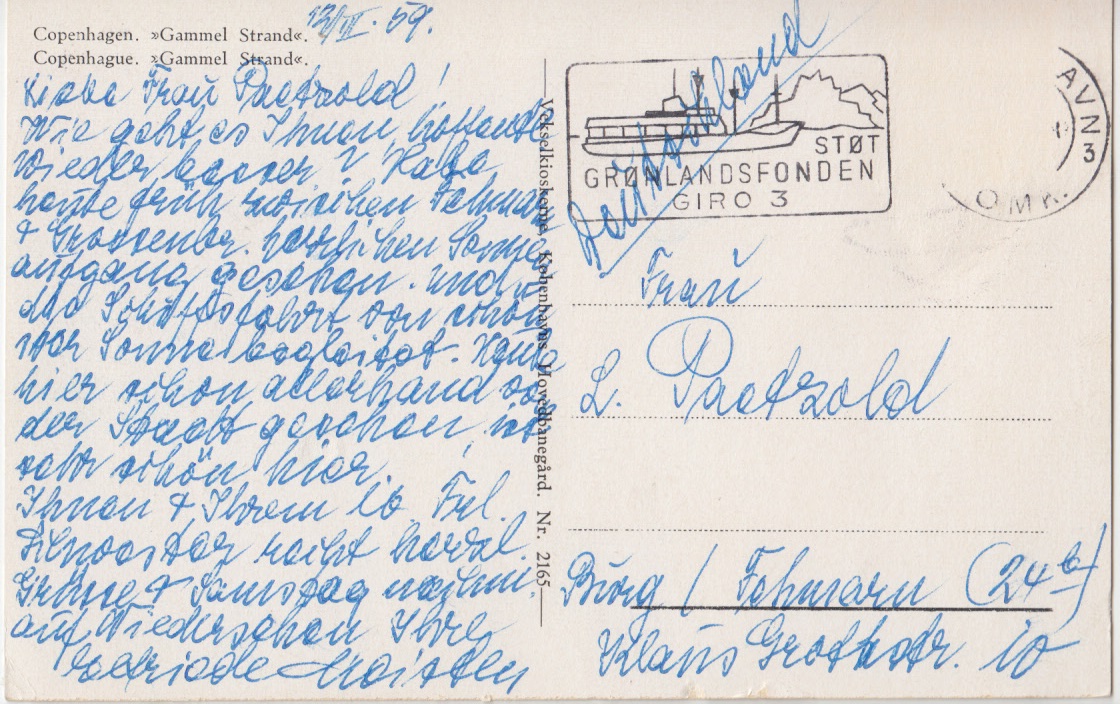 Copenhagen. »Gammel Strand«.
Copenhague. »Gammel Strand«.
59.
Liebe Frau Paetzold!
Wie geht es Ihnen hoffentl.
wieder besser? Habe
heute früh zwischen Fehmarn
& Grossenbr. herrlichen Sonnen
aufgang gesehen. und
die Schiffsfahrt von schön
ster Sonne begleitet. Haute
hier schon allerhand von
der Stadt gesehen, ist
sehr schön hier.
Ihnen & Ihrem lb Frl.
recht herzl.
Grüsse & Samstag nachmi.
auf Wiedersehen Ihre
Vekselkioskerne, Københavns Hovedbanegård. Nr. 2165
STØT
GRØNLANDSFONDEN
GIRO 3
AVN 3
OMK.
Deutschland
Frau
L. Paetzold
Burg / Fehmarn (24b)
Klaus Grothstr. 10